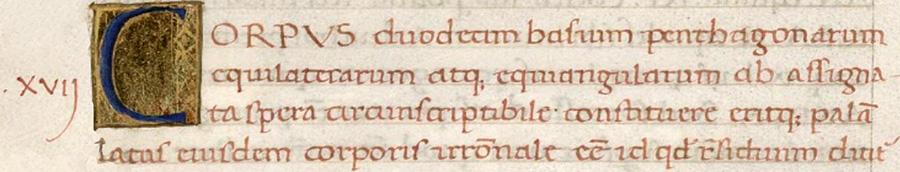 ·XVII CORPUS duodecim basium penthagonarum
equilaterarum atq; equiangularum ab assigna-
ta spera circumscriptibile constituere eritq; palā
latus eiusdem corporis irrōnale eē id qd̄ r̄siduum dicit̄